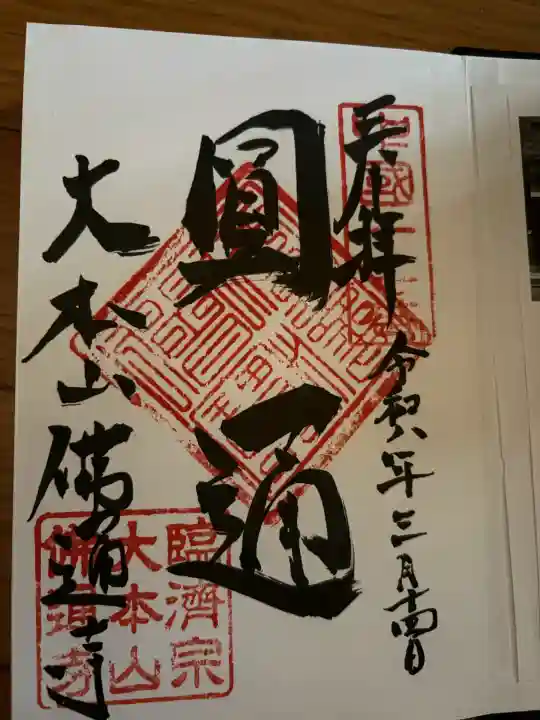 奉拝
令和八年三月十四日
圓通
大本山佛通寺
臨濟宗
大本山
佛通寺